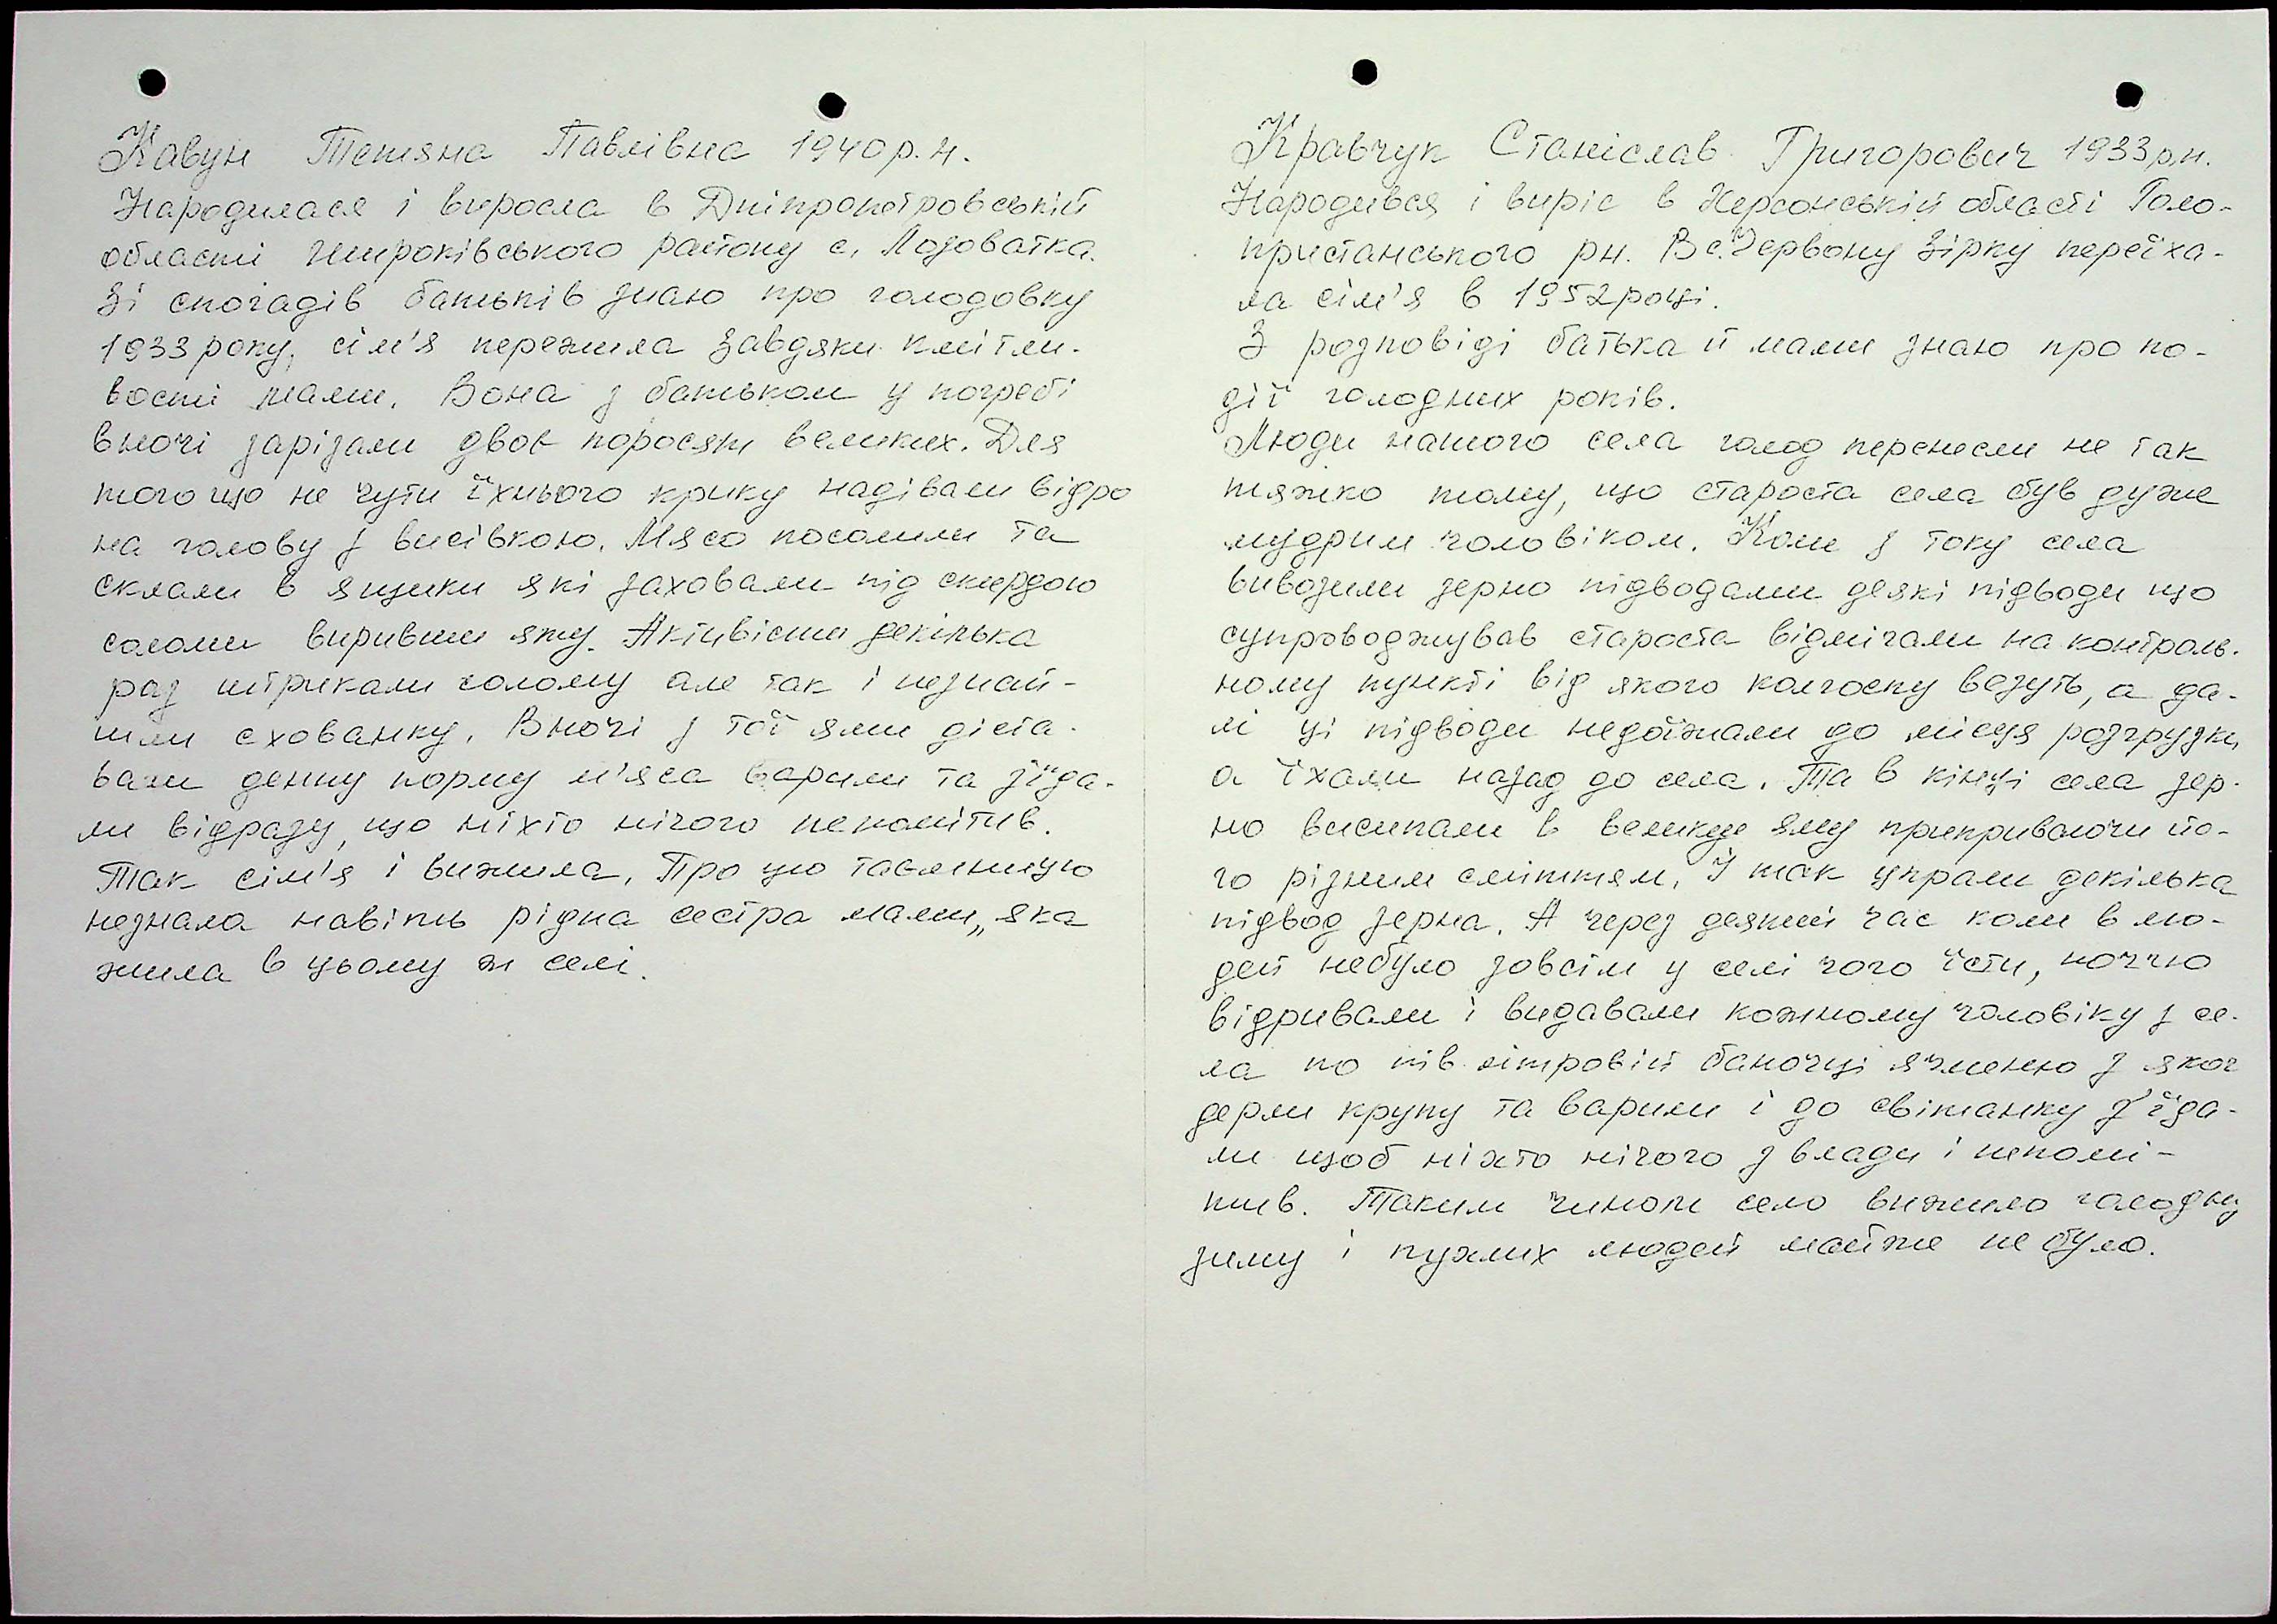 Кавун Тетяна Павлівна 1940р.н.
Народилася і виросла в Дніпропетровській
області Широківського району с. Лозоватка.
Зі спогадів батьків знаю про голодовку
1933 року, сім'я пережила завдяки кмітли-
вості мами. Вона з батьком у погребі
вночі зарізали двоє поросят великих. Для
того що не чути їхнього крику надівали відро
на голову з висівкою. Мясо посолили та
склали в ящики які заховали під скирдою
соломи виривши яму. Активісти декілька
раз штрикали солому але так і незнай-
шли схованку. Вночі з тої ями діста-
вали денну норму м'яса варили та з'їда-
ли відразу, що ніхто нічого непомітив.
Так сім'я і вижила. Про цю таємницю
незнала навіть рідна сестра мами, яка
жила в цьому ж селі.
Кравчук Станіслав Григорович 1933р.н.
Народився і виріс в Херсонській області Голо-
пристанського рн. В с. Червону Зірку переїха-
ла сім'я в 1952році.
З розповіді батька й мами знаю про по-
дії голодних років.
Люди нашого села голод перенесли не так
тяжко тому, що староста села був дуже
мудрим чоловіком. Коли з току села
вивозили зерно підводами деякі підводи що
супроводжував староста відмічали на контроль-
ному пункті від якого колгоспу везуть, а да-
лі ці підводи недоїжали до місця розгрузки,
а їхали назад до села. Та в кінці села зер-
но висипали в велику яму прикриваючи йо-
го різним сміттям. І так украли декілька
підвод зерна. А через деякий час коли в лю-
дей небуло зовсім у селі чого їсти, ноччю
відривали і видавали кожному чоловіку з се-
ла по пів літровій баночці ячменю з яког
дерли крупу та варили і до світанку з'їда-
ли щоб ніхто нічого з влади і непомі-
тив. Таким чином село вижило голодну
зиму і пухлих людей майже не було.